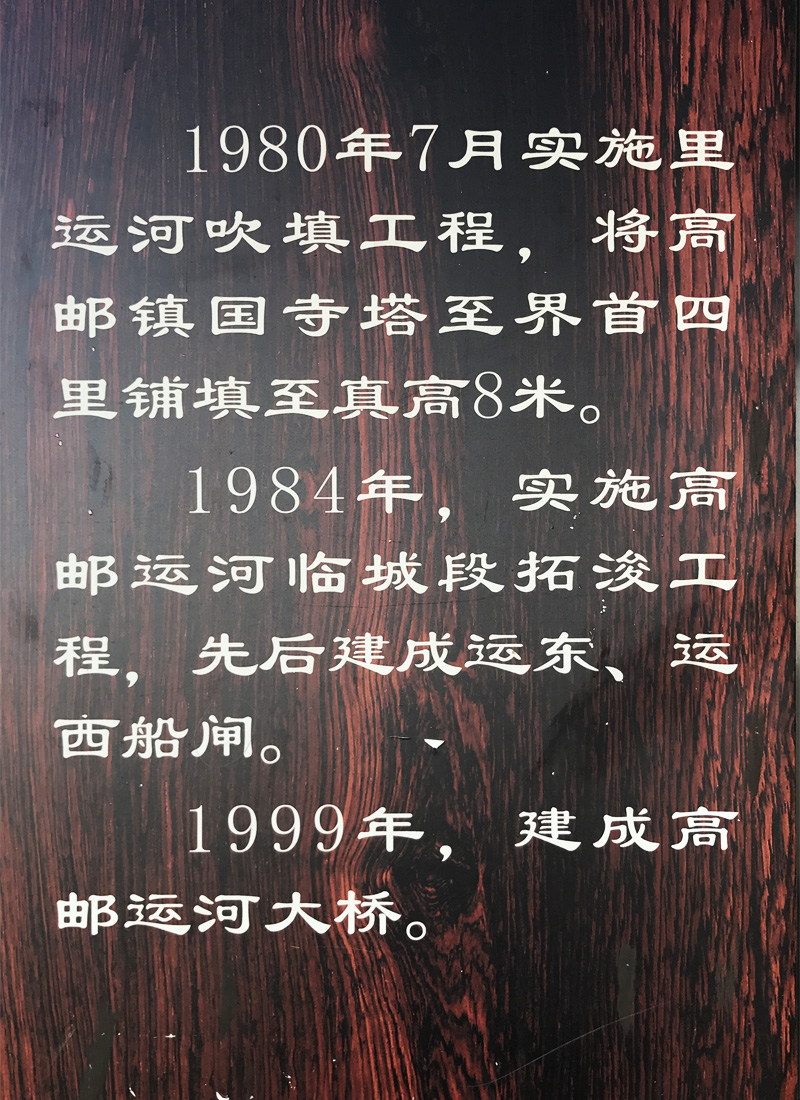 1980年7月实施里
运河吹填工程，将高
邮镇国寺塔至界首四
里铺填至真高8米。
1984年，实施高
邮运河临城段拓浚工
程，先后建成运东、运
西船闸。
1999年，建成高
邮运河大桥。